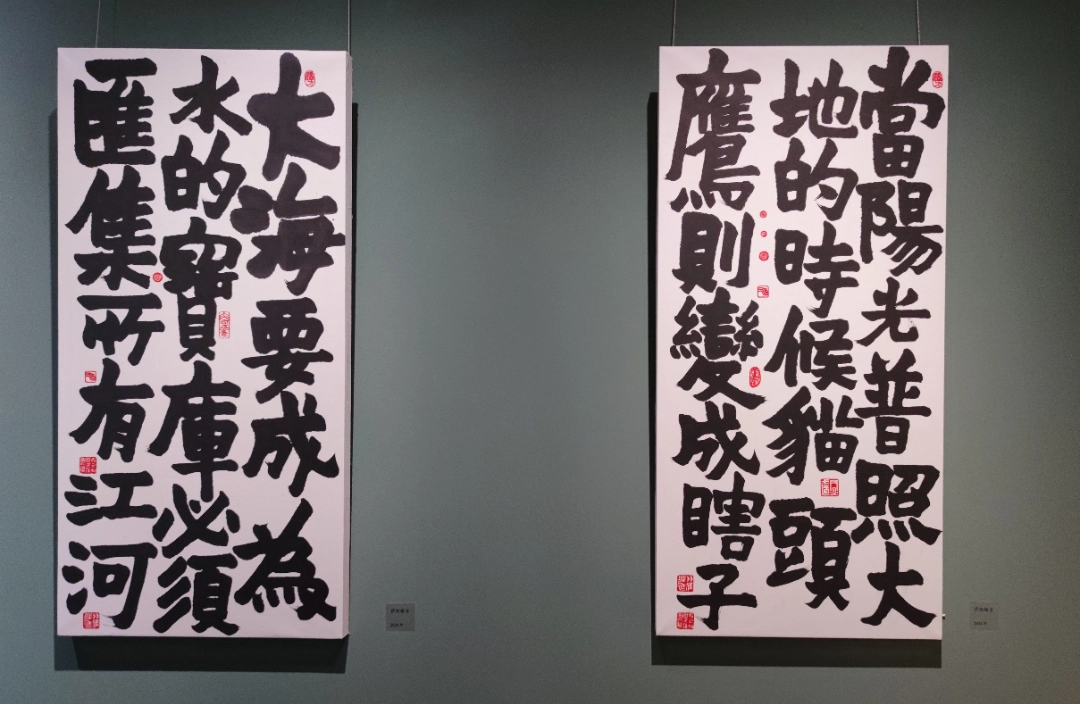 當陽光普照大
地的時候貓頭
鷹則變成瞎子
大海要成為
水的寶庫必須
匯集所有江河